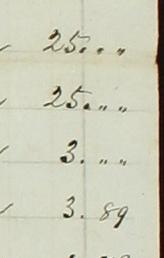 25. „ „
25. „ „
3. „ „
3. 89